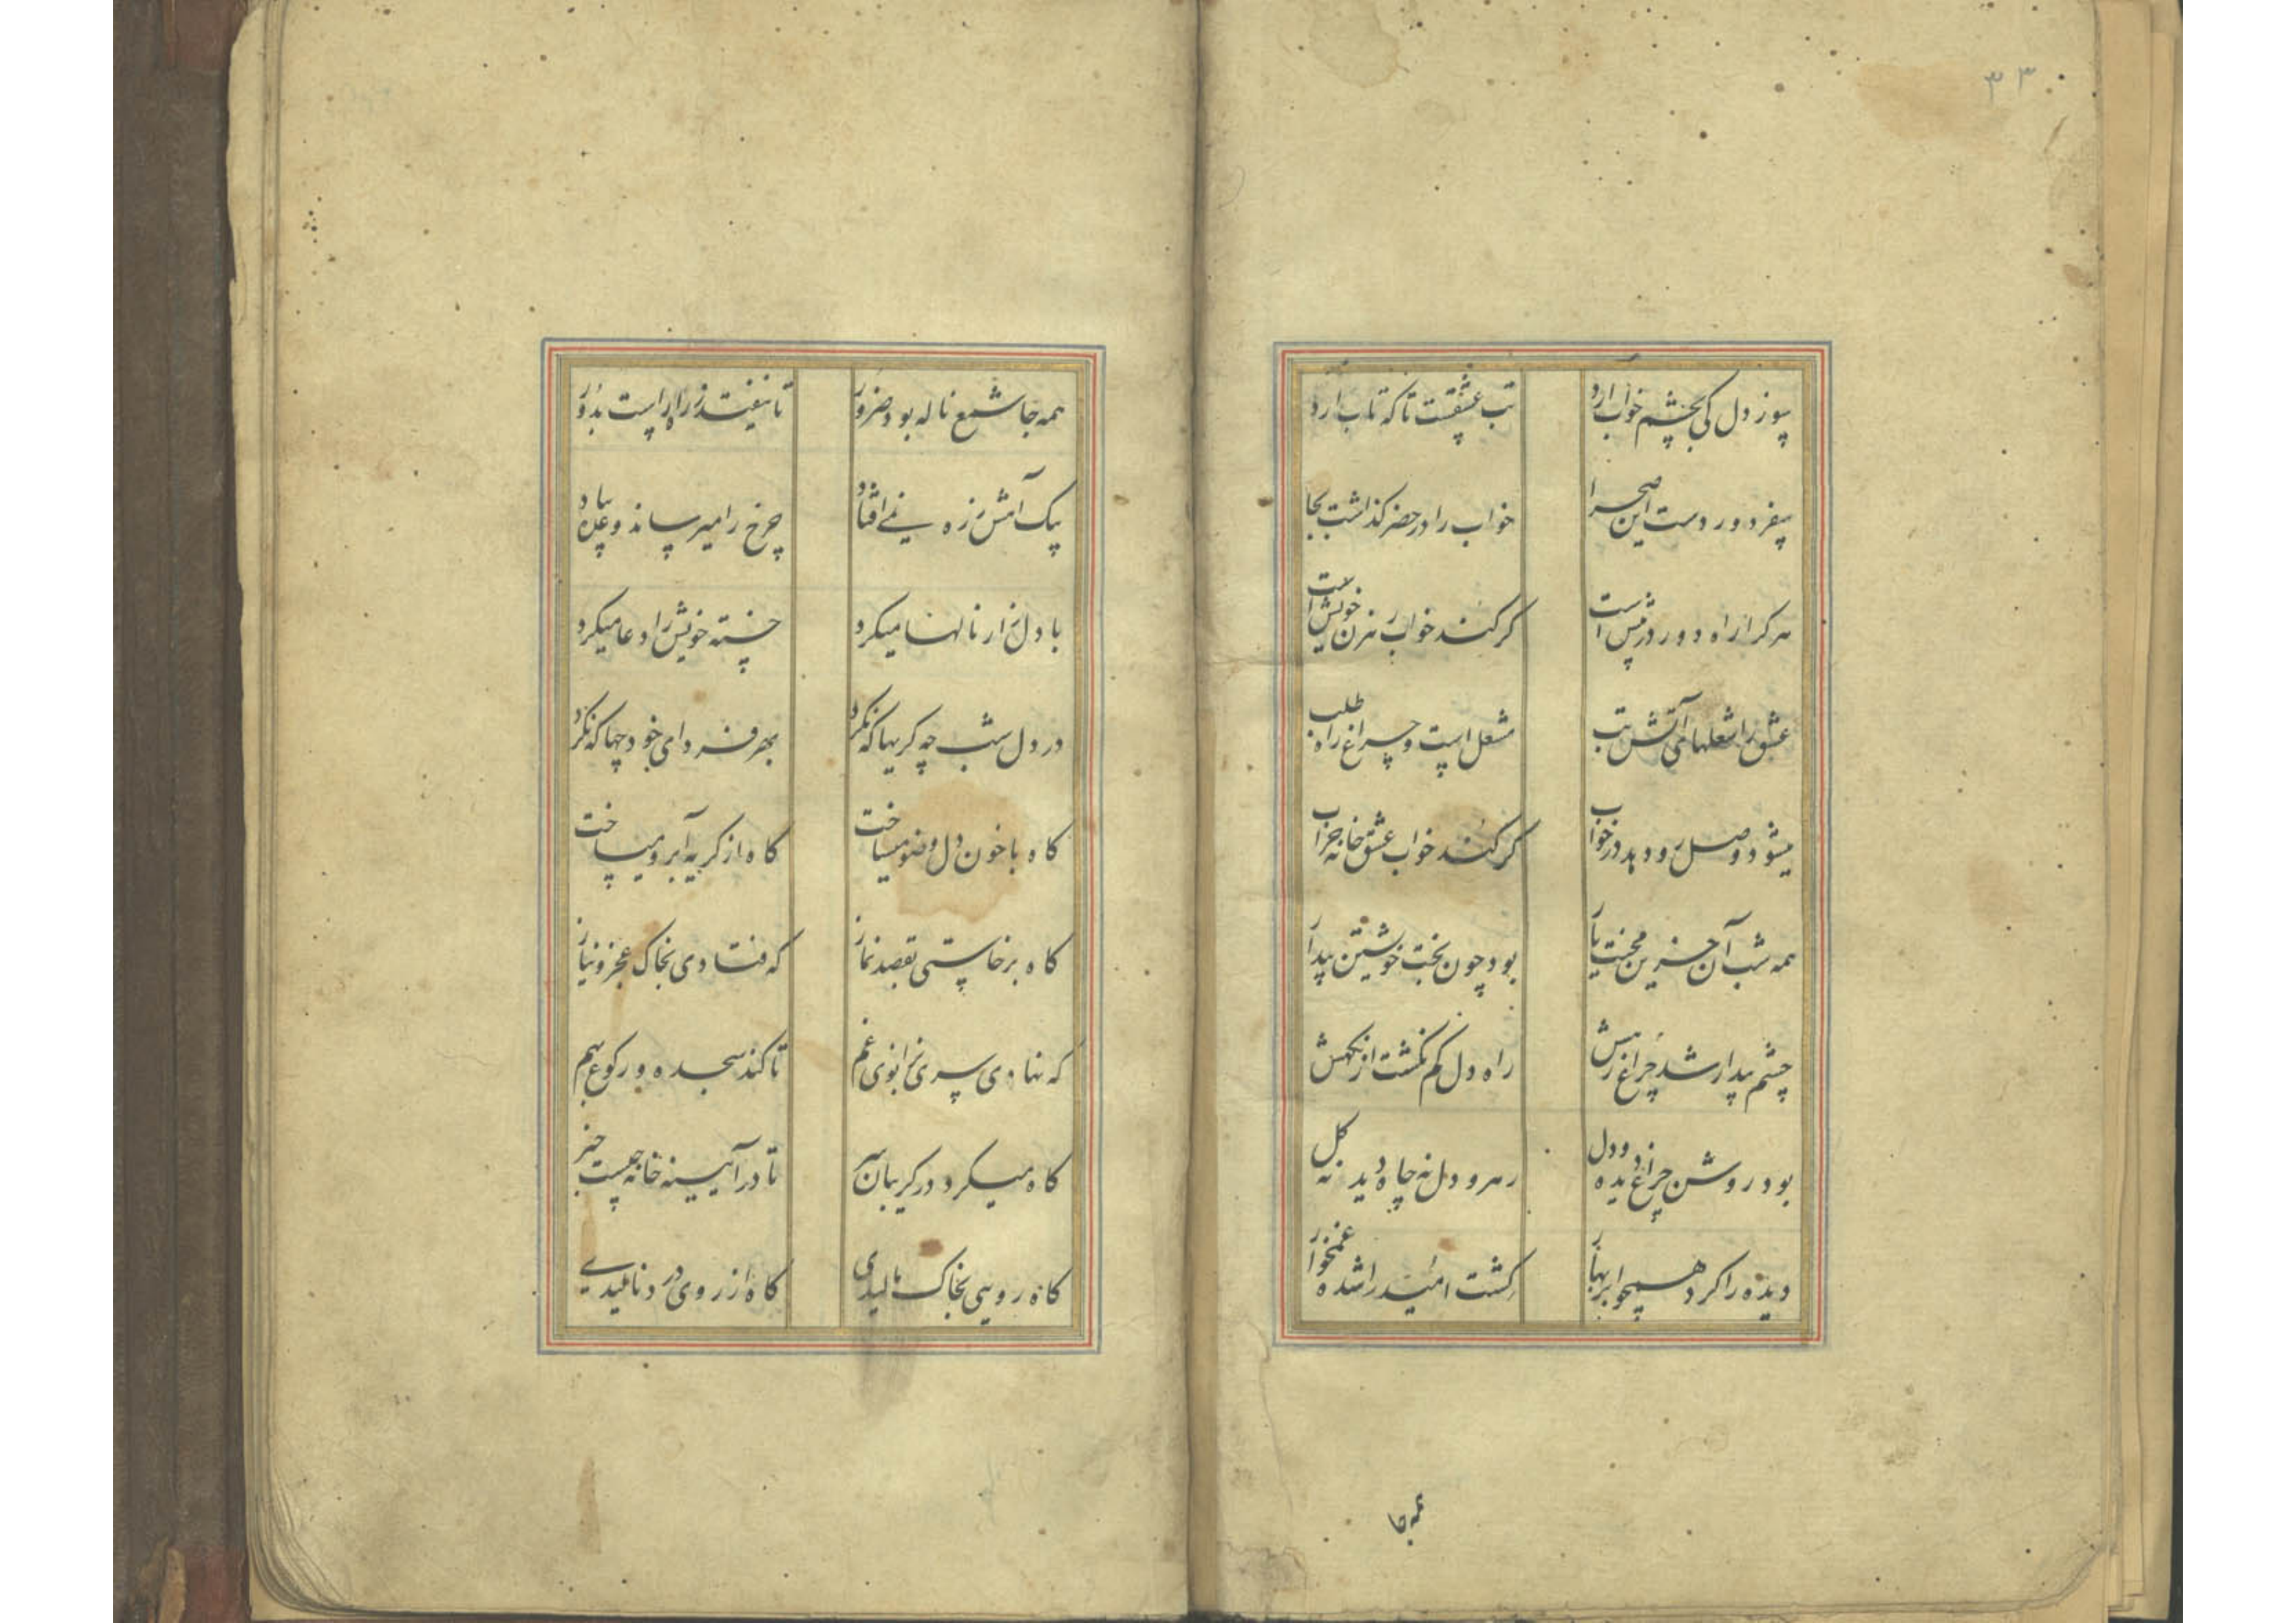 ۳۳
سوز دل کی بچشم خواب آرد تب عشقست تا که تاب آرد
سفر دور دست این صحرا خواب را در حضر گذاشت بجا
هر کرا راه دور در پیش است گر کند خواب رهزن خویش است
عشق را شعلهای آتش تب مشعل است و چراغ راه طلب
میشود وصل رو دهد در خواب گر کند خواب عشق خانه خراب
همه شب آن حزین محنت یار بود چون بخت خویشتن بیدار
چشم بیدار شد چراغ رهش راه دل گم نگشت از نگهش
بود روشن چراغ دیده و دل رهرو دل نه چاه دید نه گل
دیده را کرد همچو ابر بهار کشت امید را شده غمخوار
همه جا
همه جا شمع ناله بود ضرور تا نیفتد ز راه راست بدور
یک آهش ز ره نمی افتاد چرخ را میرساند و
با دل زار نالها میکرد خسته خویش را دعا میکرد
در دل شب چه گریها که نکرد بهر فردای خود چها که نکرد
گاه با خون دل وضو میساخت گاه از گریه آبرو میساخت
گاه برخاستی بقصد نماز گه فتادی بخاک عجز و نیاز
گه نهادی سری بزانوی غم تا کند سجده و رکوع بهم
گاه میکرد در گریبان سر تا در آیینه خانه چیست خبر
گاه رویی بخاک مالیدی گاه از روی درد نالیدی